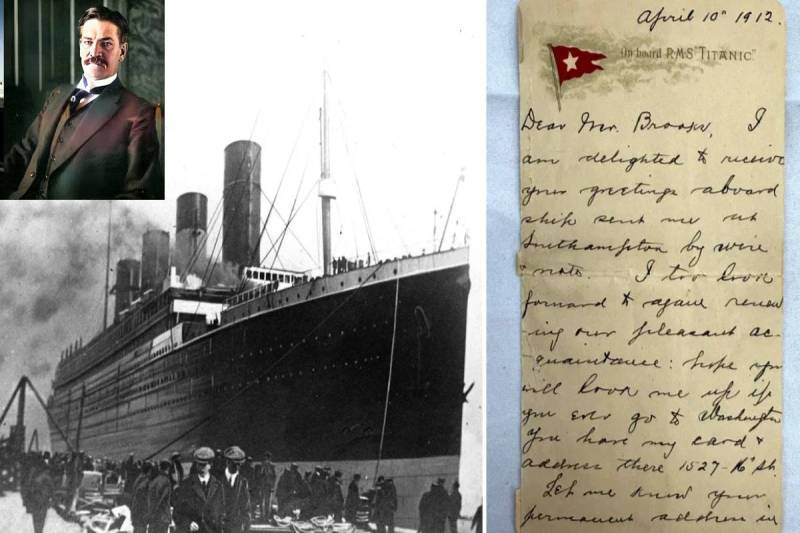 April 10" 1912.
On board RMS "TITANIC"
Dear Mr. Brooks, I
am delighted to receive
your greetings aboard
ship sent me at
Southampton by wire
& note. I too look
forward to again renew
ing our pleasant ac-
quaintance: hope you
will look me up if
you ever go to Washington
You have my card &
address there 1527-16" St.
Let me know your
permanent address in